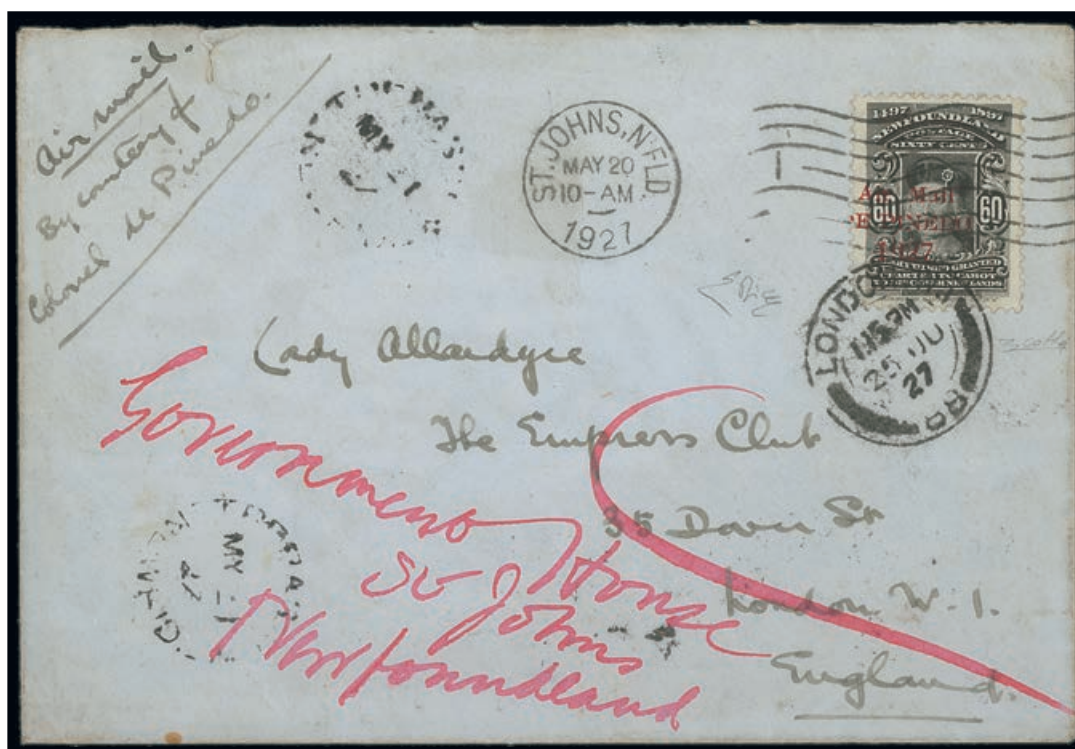 Air mail.
By courtesy of
Colonel de Pinedo.
MY 21
ST. JOHNS, N'FLD.
MAY 20
10-AM
1927
1497 1897
NEWFOUNDLAND
POSTAGE
SIXTY CENTS
60 60
Air Mail
DE PINEDO
1927
LONDON
1.15 PM
25 JU
27
88
Lady Allardyce
The Empress Club
35 Dover St
London W. 1.
England.
Government House
St Johns
Newfoundland
MY
27